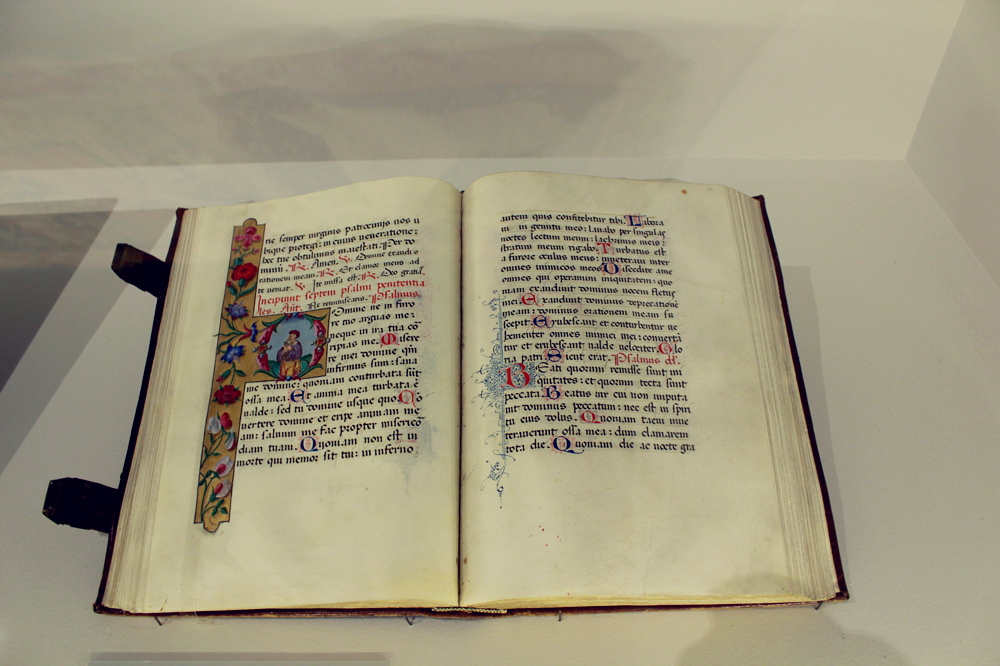 ne semper virginis patrocinijs nos u
bique protegi: in cuius veneratione
hec tue obtulimus maiestati. Per do
minū. R. Amen. V. Domine exaudi o
rationem meam. R. Et clamor meus ad
te veniat. V. Ite missa est. R. Deo gratias
Incipiunt septem psalmi penitentia
les. Ant. Ne reminiscaris. Psalmus
Domine ne in furo
re tuo arguas me:
neque in ira tua cō
ripias me. Misere
re mei domine qm̄
infirmus sum: sana
me domine: quoniam conturbata sūt
ossa mea. Et anima mea turbata ē
valde: sed tu domine usque quo. Cō
vertere domine et eripe animam me
am: salvum me fac propter miserico
diam tuam. Quoniam non est in
morte qui memor sit tui: in inferno
autem quis confitebitur tibi. Labora
ui in gemitu meo: lavabo per singulas
noctes lectum meum: lachrimis meis
stratum meum rigabo. Turbatus est
a furore oculus meus: inueteraui inter
omnes inimicos meos. Discedite a me
omnes qui operamini iniquitatem: quo
niam exaudiuit dominus vocem fletus
mei. Exaudiuit dominus deprecationē
meam: dominus orationem meam su
scepit. Erubescant et conturbentur ue
hementer omnes inimici mei: convertā
tur et erubescant valde velociter. Glo
ria patri. Sicut erat. Psalmus
Beati quorum remisse sunt ini
quitates: et quorum tecta sunt
peccata. Beatus vir cui non imputa
uit dominus peccatum: nec est in spiri
tu eius dolus. Quoniam tacui inue
teraverunt ossa mea: dum clamarem
tota die. Quoniam die ac nocte gra